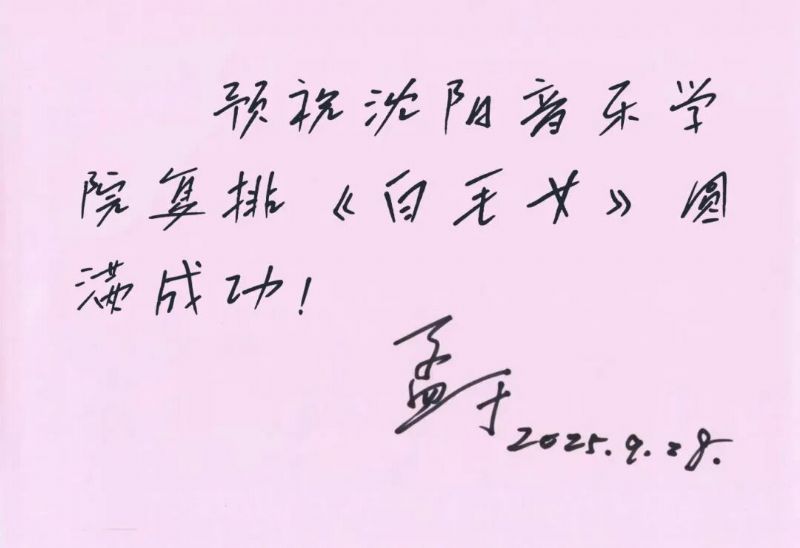 预祝沈阳音乐学
院复排《白毛女》圆
满成功！
孟于
2025.9.28.